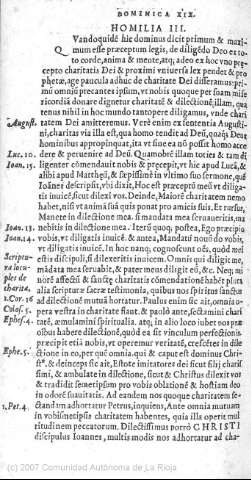 DOMINICA XIX.
HOMILIA III.
Vandoquidē hic dominus dicit primum & maxi-
mum esse præceptum legis, de diligēdo Deo ex to-
to corde, anima & mente, atq; adeo ex hoc vno præ-
cepto charitatis Dei & proximi vniuersa lex pendet & pro
phetæ, age paucula adhuc de charitate Dei differamus: pri-
mi omniū precantes ipsum, vt nobis quoque per suam mise
ricordiā donare dignetur charitatē & dilectionē, illam, qua
tenus nihil in hoc mundo tantopere diligamus, vnde chari
August.
tatem Dei amitteremus. Verè enim ex sententia Augusti-
ni, charitas via illa est, qua homo tendit ad Deū, quaq; Deus
hominibus appropinquat, ita vt sine ea nō possit homo acce
Luc. 10.
dere & peruenire ad Deū. Quamobrē illam toties & tam di
Ioan. 15.
ligenter comendauit nobis & præcepit, vt hic apud Lucā, &
alibi apud Matthęū, & sępissimè in vltimo suo sermone, quē
Ioānes descripsit, vbi dixit, Hoc est præceptū meū vt diliga-
tis inuicē, sicut dilexi vos. Deinde, Maiorē charitatem nemo
habet, nisi vt animā suā quis ponat pro amicis suis. Et rursus,
Manere in dilectione mea. si mandata mea seruaueritis, ma
Ioan. 13.
nebitis in dilectione mea. Iterū quoq; postea, Ego præcipio
Ioan. 14.
vobis, vt diligatis inuicē. & antea, Mandatū nouū do vobis,
vt diligatis inuicē. In hoc nanq; cognoscent oēs, quòd mei
Scriptu-
estis discipuli, si dilexeritis inuicem. Omnis qui diligit me,
ra locu-
mādata mea seruabit, & pater meus diliget eū, &c. Neq; mi
ples de
norē affectū & sanctę charitatis cōmendationē habēt pluri
charita.
alia scripturæ sacræ testimonia, quibus nos spiritus sanctus
1. Cor. 16
ad dilectionē mutuā hortatur. Paulus enim sic ait, omnia o-
Colos. 3.
pera vestra in charitate fiant. & paulò antè, sectamini chari
Ephes. 4.
tatē, æmulamini spiritualia. atq; in alio loco iubet nos præ
oībus habere dilectionē, quòd ea sit vinculum perfectionis.
præcipit etiā nobis, vt operemur veritatē, crescētes in dile
Ephe. 5.
ctione in eo, per quē omnia. qui & caput est dominus Chri-
st9. & deinceps sic ait, Estote imitatores dei sicut filij charis
simi, & ambulate in dilectione, sicut & Christus dilexit vos
& tradidit semetipsum pro vobis oblationē & hostiam deo
in odorē suauitatis. Ad eandem nos quoque charitatem se-
1. Pet. 4.
ctandam adhortatur Petrus, inquiens, Ante omnia mutuam
in vobismetipsis charitatem habentes, quia illa operit mul
titudinem peccatorum. Dilectissimus porrò CHRISTI
discipulus Ioannes, multis modis nos adhortatur ad cha-
(c) 2007 Comunidad Autónoma de La Rioja